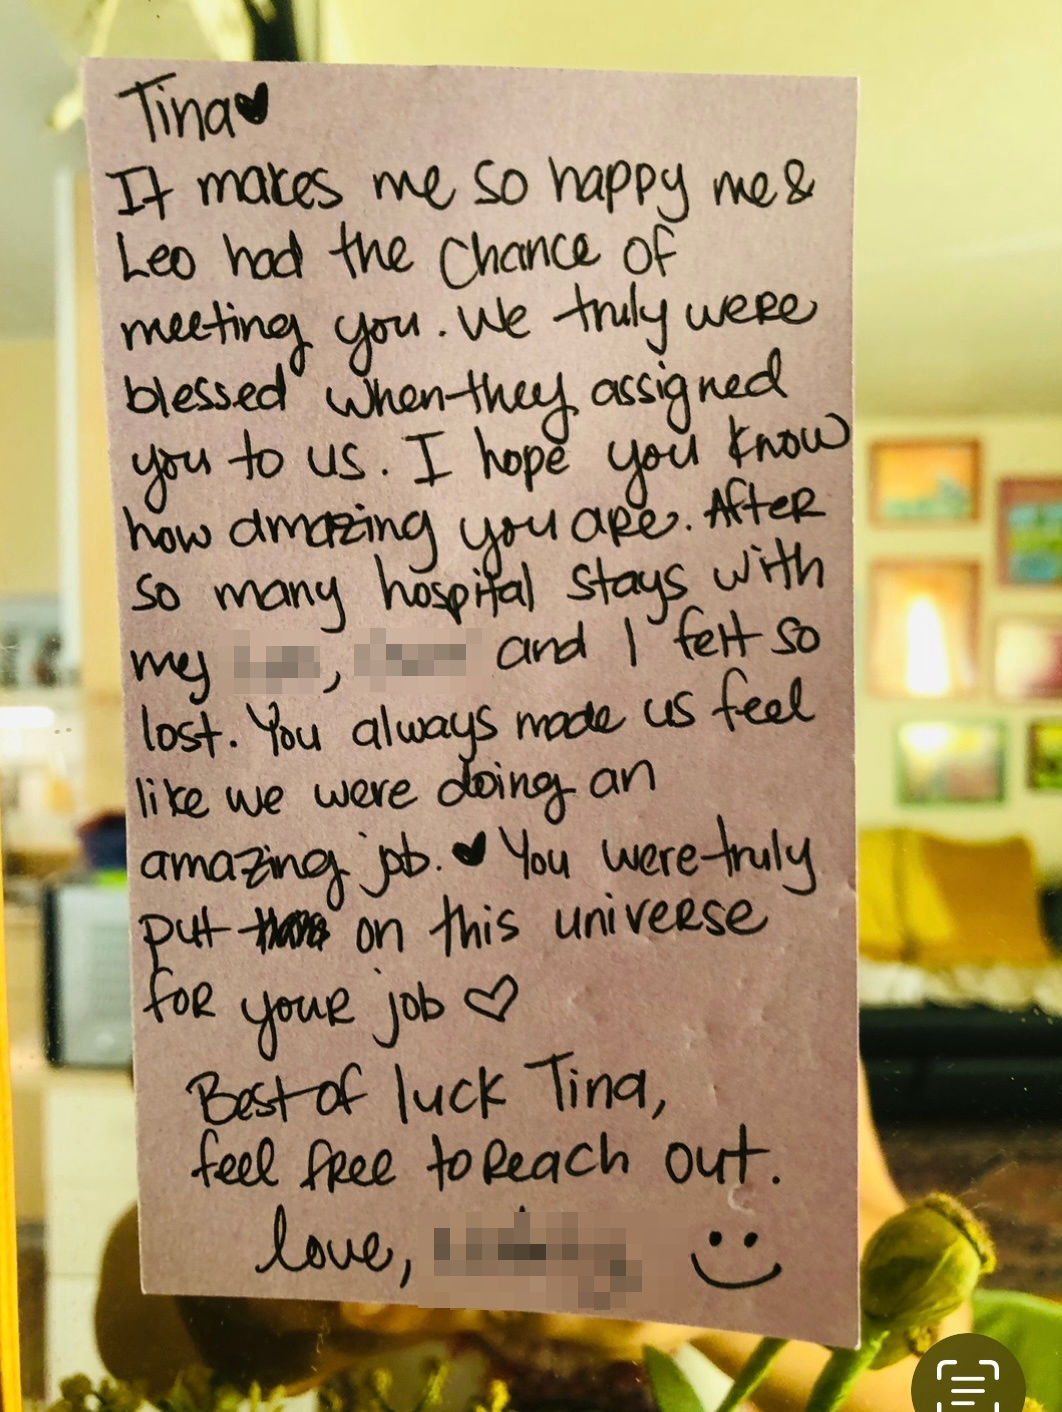 Tina♥
It makes me so happy me &
Leo had the chance of
meeting you. We truly were
blessed when they assigned
you to us. I hope you know
how amazing you are. After
so many hospital stays with
my , and I felt so
lost. You always made us feel
like we were doing an
amazing job. ♥ You were truly
put on this universe
for your job ♡
Best of luck Tina,
feel free to reach out.
love, :)